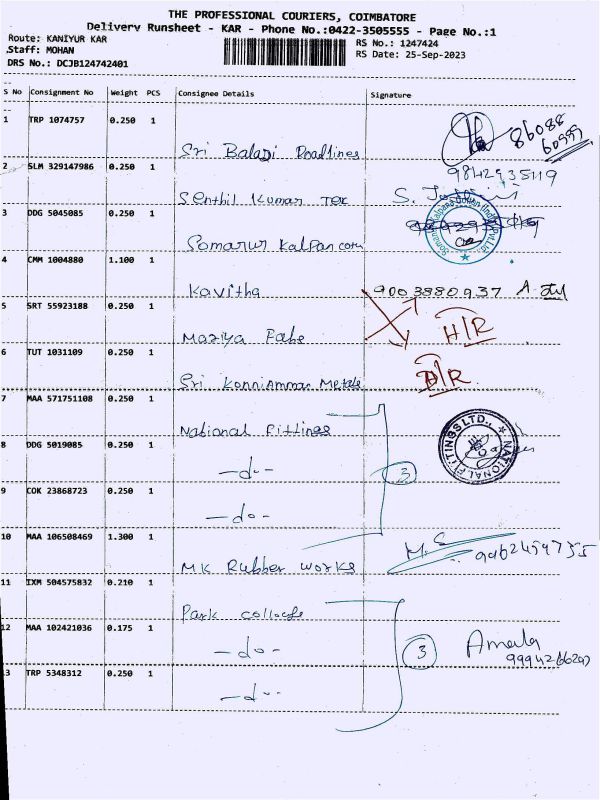 THE PROFESSIONAL COURIERS, COIMBATORE
Delivery Runsheet - KAR - Phone No.:0422-3505555 - Page No.:1
Route: KANIYUR KAR
RS No.: 1247424
Staff: MOHAN
RS Date: 25-Sep-2023
DRS No.: DCJB124742401
S No Consignment No Weight PCS Consignee Details Signature
1 TRP 1074757 0.250 1 Sri Balaji Roadlines 86088 60999
2 SLM 329147986 0.250 1 Senthil Kumar Tex 9842935119
3 DDG 5045085 0.250 1 Somanur Kalpan com
4 CMM 1004880 1.100 1 Kavitha 9003880937
5 SRT 55923188 0.250 1 Mariya Fabe H/R
6 TUT 1031109 0.250 1 Sri Konniamman Metals D/R
7 MAA 571751108 0.250 1 National Fittings
NATIONAL FITTINGS LTD.,
8 DDG 5019085 0.250 1 -do- 3
9 COK 23868723 0.250 1 -do-
10 MAA 106508469 1.300 1 MK Rubber works M.S 9962459755
11 IXM 504575832 0.210 1 Park college
12 MAA 102421036 0.175 1 -do- 3 Amala
13 TRP 5348312 0.250 1 -do-